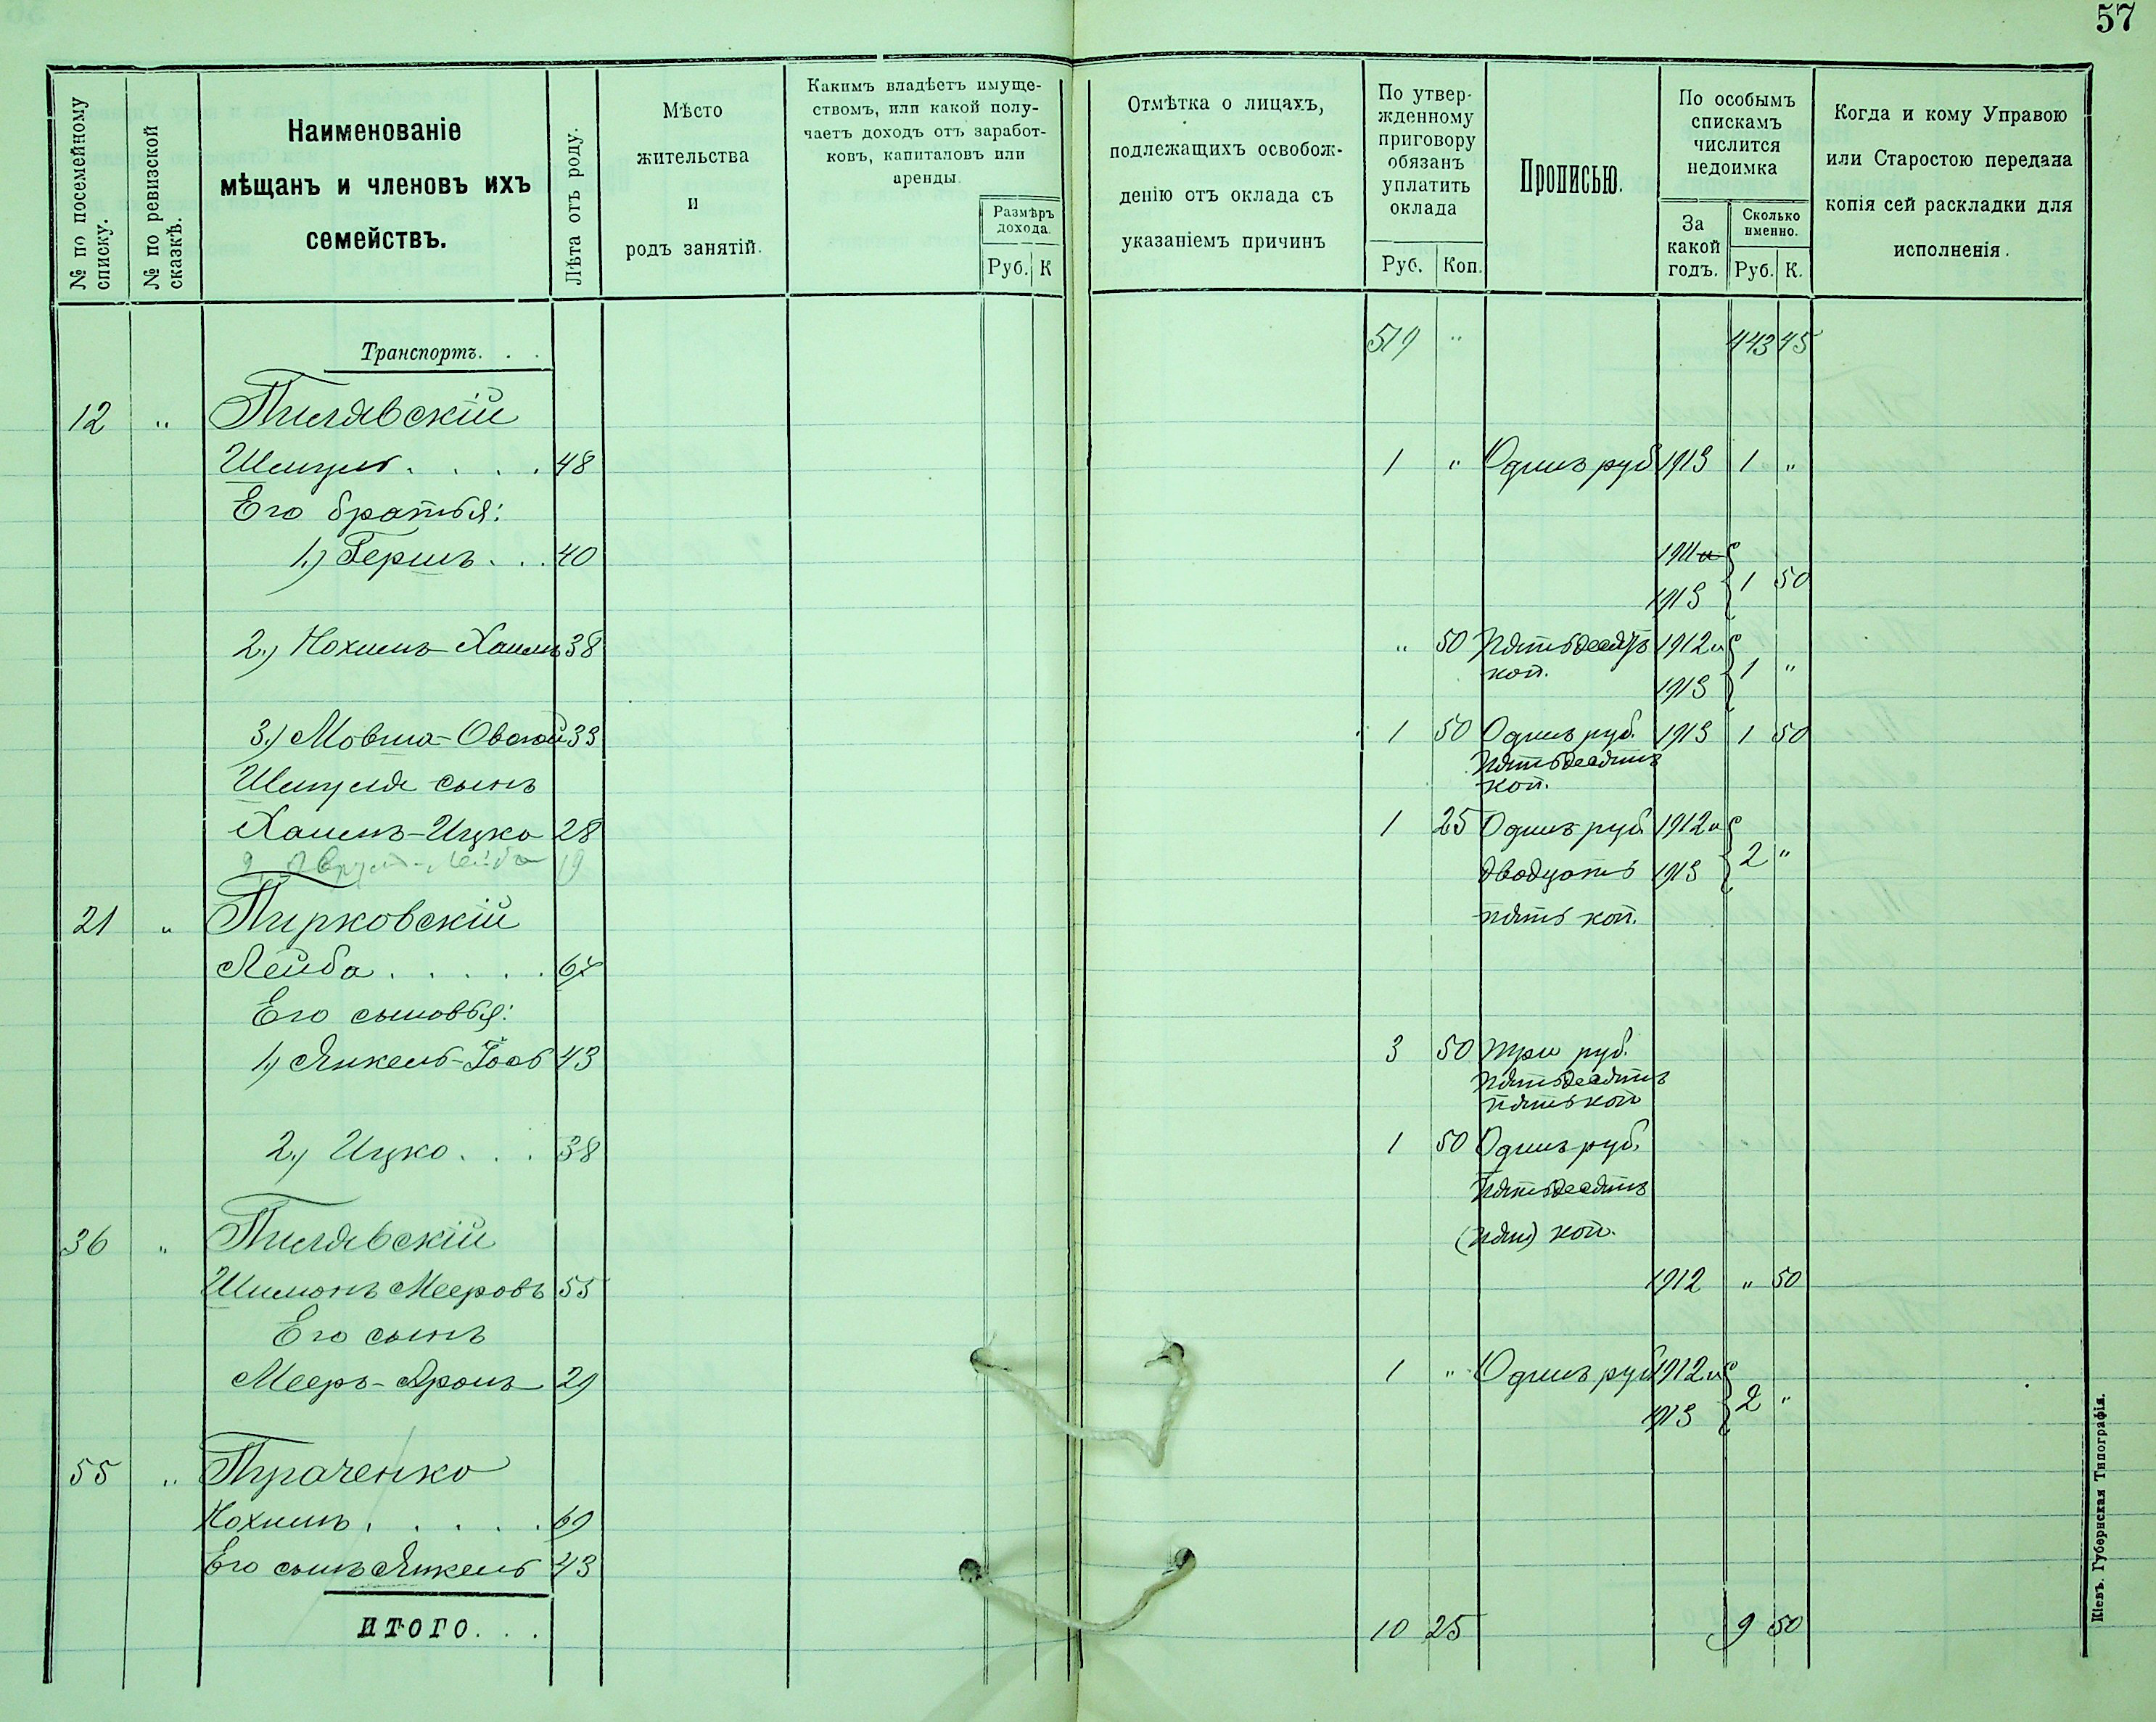 57
№ по посемейному списку.
№ по ревизской сказкѣ.
Наименованіе
мѣщанъ и членовъ ихъ
семействъ.
Лѣта отъ роду.
Мѣсто
жительства
и
родъ занятій.
Какимъ владѣетъ имуще-
ствомъ, или какой полу-
чаетъ доходъ отъ заработ-
ковъ, капиталовъ или
аренды.
Размѣръ
дохода.
Руб. К
Отмѣтка о лицахъ,
подлежащихъ освобож-
денію отъ оклада съ
указаніемъ причинъ
По утвер-
жденному
приговору
обязанъ
уплатить
оклада
Руб. Коп.
Прописью.
По особымъ
спискамъ
числится
недоимка
За
какой
годъ.
Сколько
именно.
Руб. К.
Когда и кому Управою
или Старостою передана
копія сей раскладки для
исполненія.
Транспортъ. . . 519 " 443 45
12 " Пилявскій
Шмуль. . . . 48 1 " Одинъ руб 1913 1 "
Его братья:
1.) Гершъ. . . 40 1911 и
1913 1 50
2.) Нохимъ-Хаимъ 38 " 50 Пятьдесятъ 1912 и
коп. 1913 1 "
3.) Мовша-Овсей 33 1 50 Одинъ руб. 1913 1 50
Пятьдесятъ
Шмуля сынъ коп.
Хаимъ-Ицко 28 1 25 Одинъ руб. 1912 и
19 двадцать 1913 2 "
21 " Пирковскій пять коп.
Лейба. . . . . 67
Его сыновья:
1.) Янкель-Іось 43 3 50 Три руб.
Пятьдесятъ
пять коп
2.) Ицко. . . 38 1 50 Одинъ руб.
Пятьдесятъ
36 " Пилявскій (пять) коп.
Шимонъ Мееровъ 55 1912 " 50
Его сынъ
Мееръ-Аронъ 29 1 " Одинъ руб 1912 и
1913 2 "
55 " Пугаченко
Нохимъ. . . . . 69
Его сынъ Янкель 43
ИТОГО. . . 10 25 9 50
Кіевъ. Губернская Типографія.